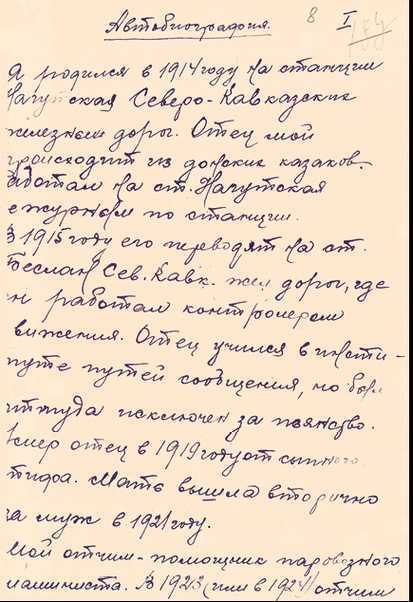 8 I
Автобиография.
Я родился в 1914 году на станции
Нагутская Северо-Кавказских
железных дорог. Отец мой
происходит из донских казаков.
Работал на ст. Нагутская
ежурным по станции.
В 1915 году его переводят на ст.
Беслан Сев. Кавк. жел дорог, где
он работал контролером
вижения. Отец учился в инсти-
туте путей сообщения, но был
оттуда исключен за пьянство.
Умер отец в 1919 году от сыпного
тифа. Мать вышла вторично
за муж в 1921 году.
Мой отчим - помощник паровозного
машиниста. В 1923 (или в 1924) отчим